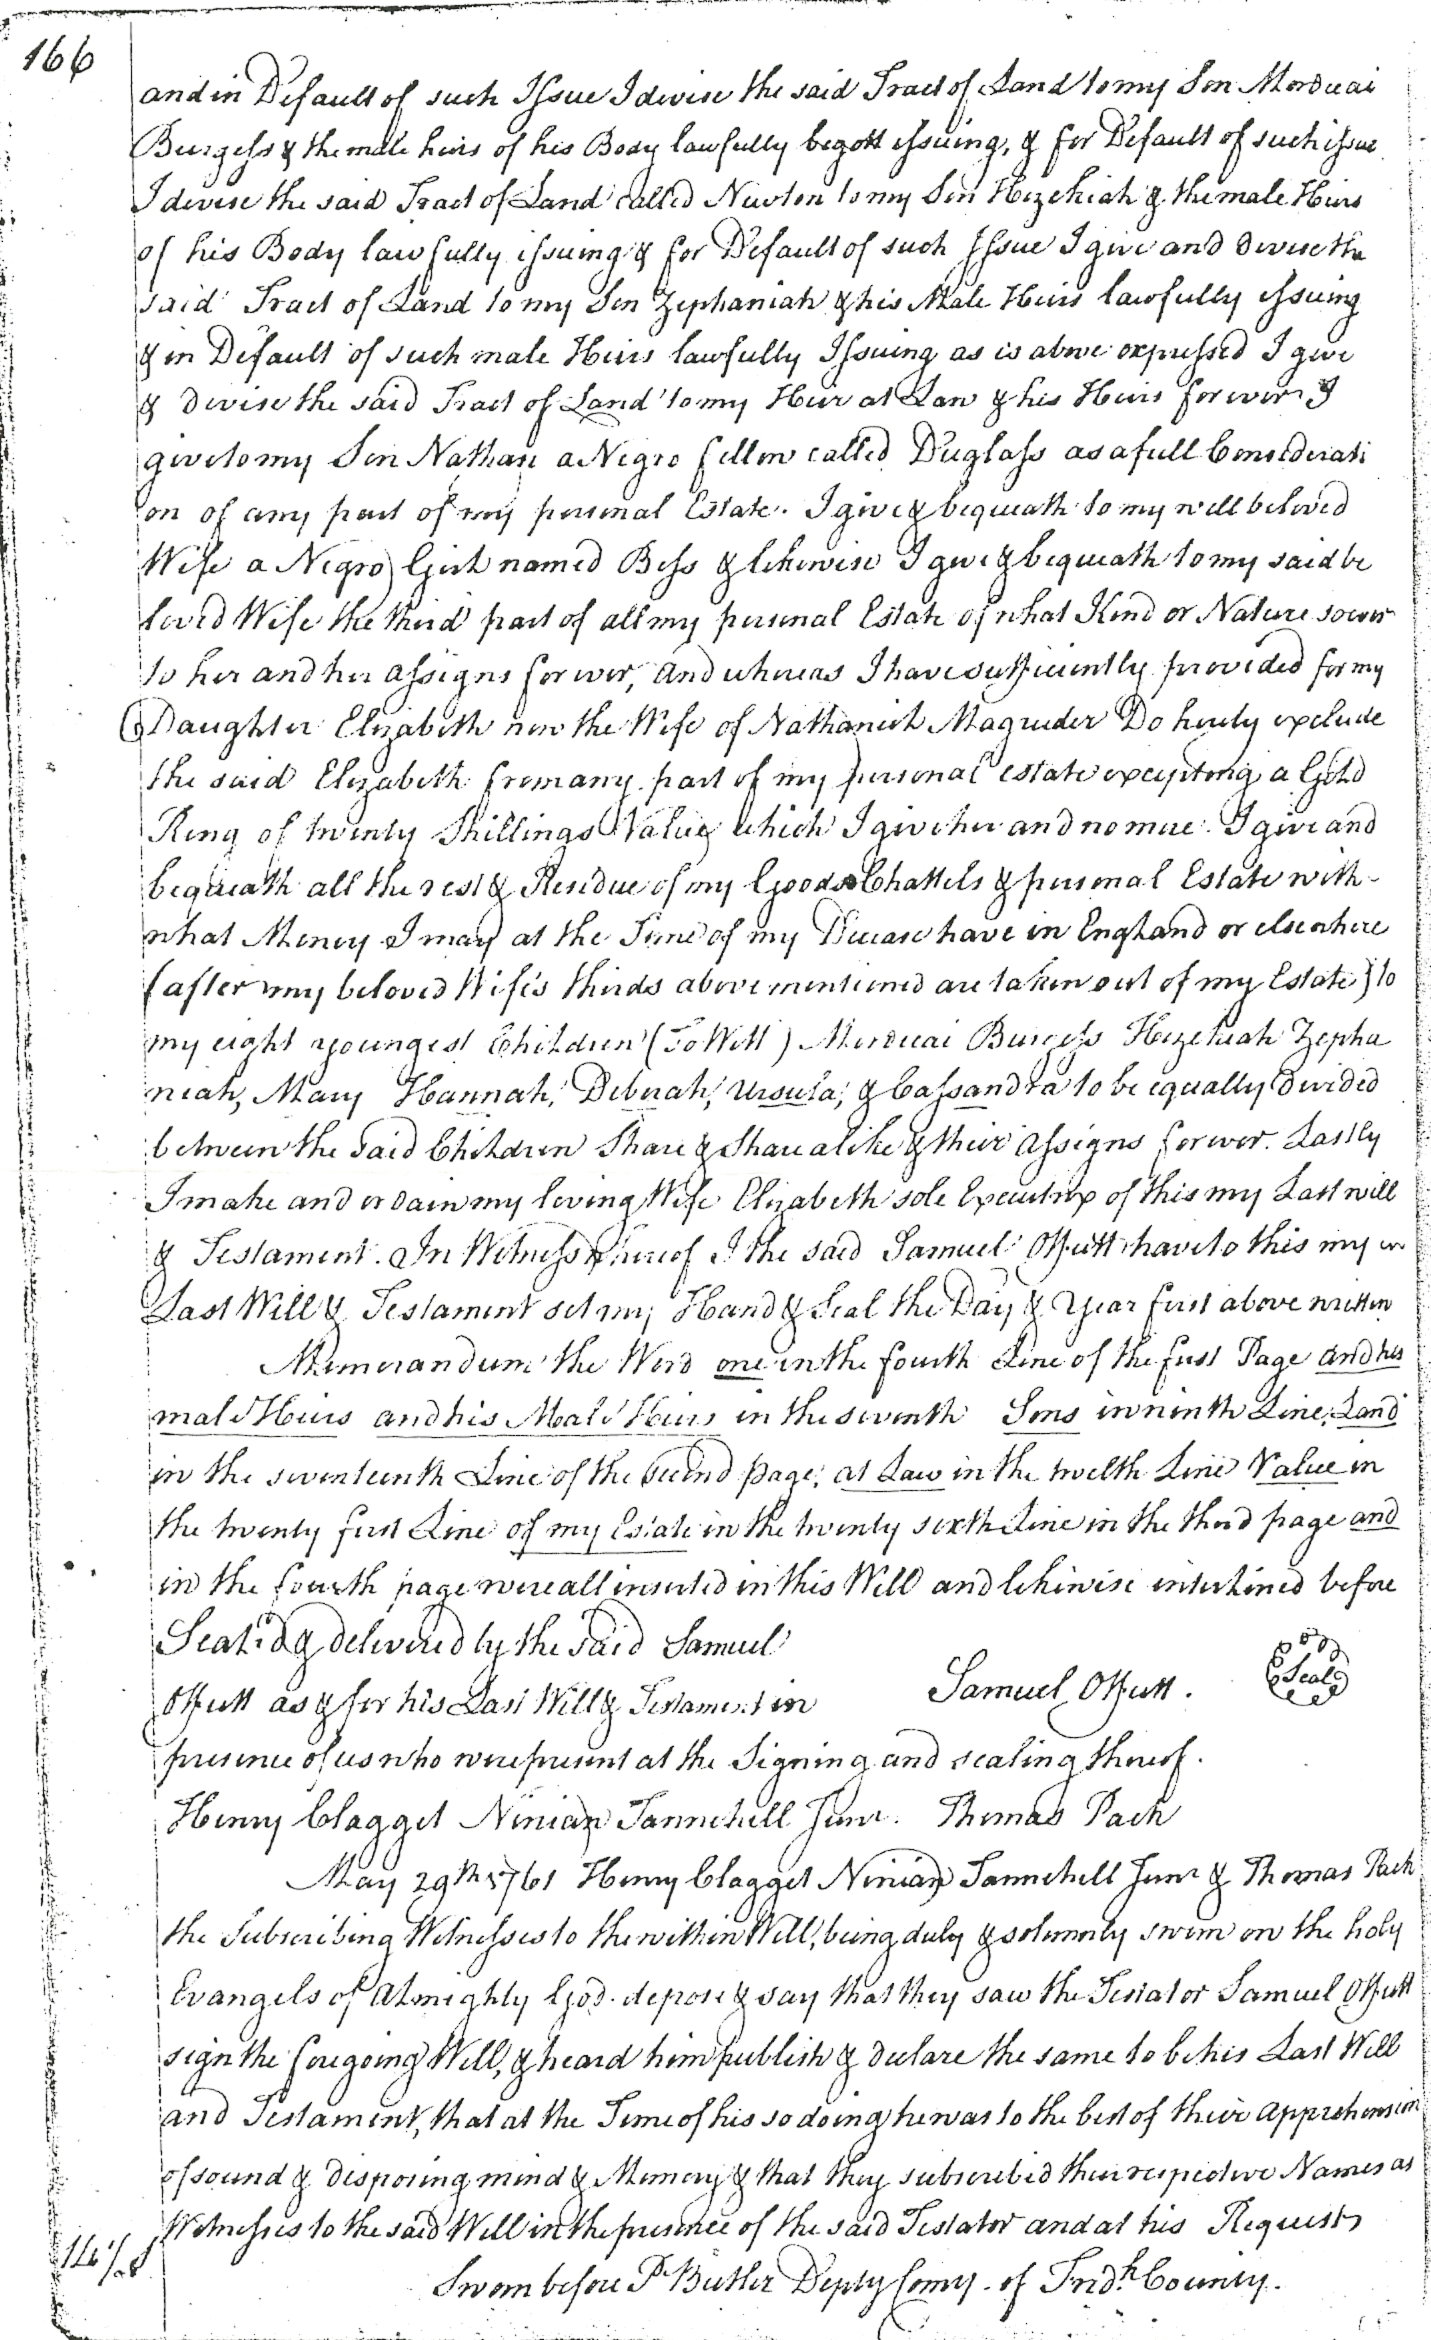 166
and in Default of such Issue I devise the said Tract of Land to my Son Morducai
Burgess & the male heirs of his Body lawfully begott issuing, & for Default of such issue
I devise the said Tract of Land called Newton to my Son Hezekiah & the male Heirs
of his Body lawfully issuing & for Default of such Issue I give and devise the
said Tract of Land to my Son Zephaniah & his Male Heirs lawfully issuing
& in Default of such male Heirs lawfully Issuing as is above expressed I give
& devise the said Tract of Land to my Heir at Law & his Heirs for ever I
give to my Son Nathan a Negro fellow called Duglass as a full Considerati
on of any part of my personal Estate. I give & bequeath to my well beloved
Wife a Negro Girl named Bess & likewise I give & bequeath to my said be
loved Wife the third part of all my personal Estate of what Kind or Nature soever
to her and her assigns for ever, and whereas I have sufficiently provided for my
Daughter Elizabeth now the Wife of Nathaniel Magruder Do hereby exclude
the said Elizabeth from any part of my personal estate excepting a Gold
Ring of twenty Shillings Value which I give her and no more. I give and
bequeath all the rest & Residue of my Goods Chattels & personal Estate with
what Money I may at the Time of my Decease have in England or elsewhere
(after my beloved Wife's thirds above mentioned are taken out of my Estate) to
my eight youngest Children (To Witt) Morducai Burgess Hezekiah Zepha
niah, Mary Hannah, Deborah, Ursula, & Cassandra to be equally divided
between the said Children Share & Share alike & their assigns for ever. Lastly
I make and ordain my loving Wife Elizabeth sole Executrix of this my Last will
& Testament. In Witness whereof I the said Samuel Offutt have to this my
Last Will & Testament set my Hand & Seal the Day & Year first above written
Memorandum the Word one in the fourth Line of the first Page and his
male Heirs and his Male Heirs in the seventh Sons in ninth Line, Land
in the seventeenth Line of the second page, at Law in the twelth Line Value in
the twenty first Line of my Estate in the twenty sixth Line in the third page and
in the fourth page were all inserted in this Will and likewise interlined before
Seal'd & delivered by the said Samuel
Offutt as & for his Last Will & Testament in Samuel Offutt. Seal
presence of us who were present at the Signing and sealing thereof.
Henry Clagget Ninian Tannehill Junr. Thomas Pack
May 29th 1761 Henry Clagget Ninian Tannehill Junr & Thomas Pack
the Subscribing Witnesses to the within Will, being duly & solemnly sworn on the holy
Evangels of Almighty God. depose & say that they saw the Testator Samuel Offutt
sign the foregoing Will, & heard him publish & declare the same to be his Last Will
and Testament, that at the Time of his so doing he was to the best of their apprehension
of sound & disposing mind & Memory & that they subscribed their respective Names as
Witnesses to the said Will in the presence of the said Testator and at his Request
Sworn before Pr Butler Depty Comy. of Fredk County.